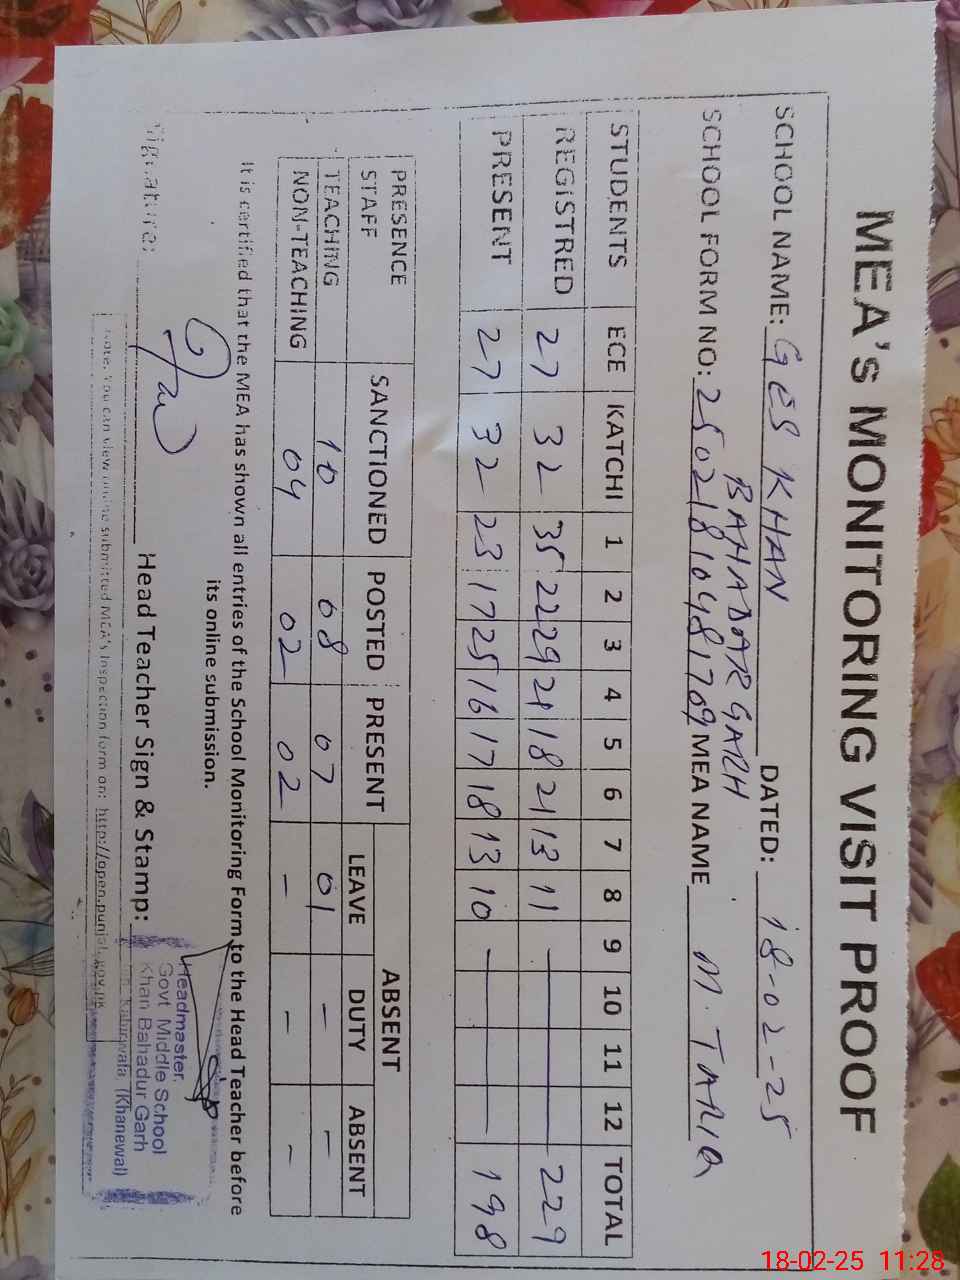 MEA'S MONITORING VISIT PROOF
SCHOOL NAME: GES KHAN DATED: 18-02-25
BAHADAR GARH
SCHOOL FORM NO: 25021810481709 MEA NAME M. TARIQ
STUDENTS ECE KATCHI 1 2 3 4 5 6 7 8 9 10 11 12 TOTAL
REGISTRED 27 32 35 22 29 21 18 21 13 11 — 229
PRESENT 27 32 23 17 25 16 17 18 13 10 — 198
PRESENCE STAFF SANCTIONED POSTED PRESENT ABSENT
LEAVE DUTY ABSENT
TEACHING 10 08 07 01 - -
NON-TEACHING 04 02 02 - - -
It is certified that the MEA has shown all entries of the School Monitoring Form to the Head Teacher before
its online submission.
Signature: Head Teacher Sign & Stamp:
Headmaster,
Govt Middle School
Khan Bahadur Garh
Kabirwala (Khanewal)
Note: You can view online submitted MEA's Inspection form on: http://open.punjab.gov.pk
18-02-25 11:28